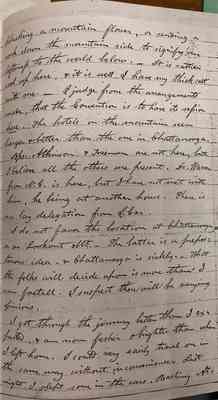 plucking a mountain flower, or sending a
rock down the mountain side to signify
attempt to the world below. — It is rather
cool up here, & it is well I have my thick coat
with me. — I judge from the arrangements
made, that the Convention is to have its sessions
here. The hotels on the mountain seem
larger & better than the one in Chattanooga.
Bps. Atkinson & are not here, but
I believe all the others are present. Dr.
from N.C. is here, but I have not met with
him, he being at another house. There is
no lay delegation from
I do not favor the location at Chattanooga
or on Lookout Mt. — The latter is a
idea, & Chattanooga is sickly. — What
the folks will decide upon is more than I
can foretell. I suspect there will be varying
opinions.
I got through the journey better than I ex-
pected, & am now fresher & brighter than when
I left home. I could very easily travel on in
the same way without inconvenience. Last
night, I slept some in the cars.